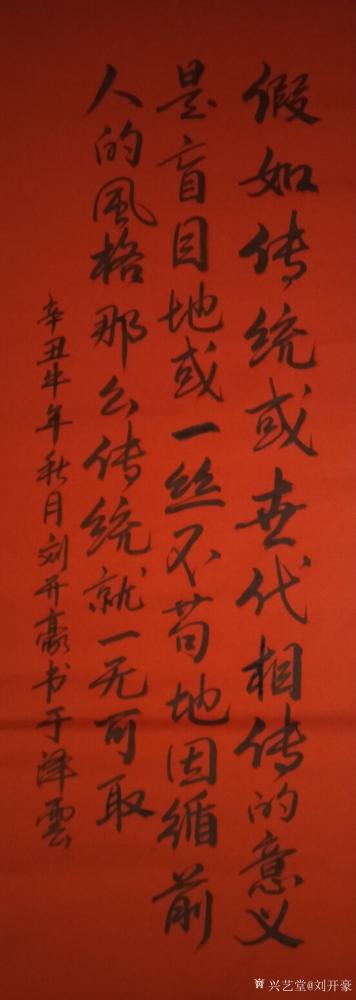 假如传统或世代相传的意义
是盲目地或一丝不苟地因循前
人的風格那么传统就一无可取
辛丑牛年秋月刘开豪书于泽雲
兴艺堂@刘开豪